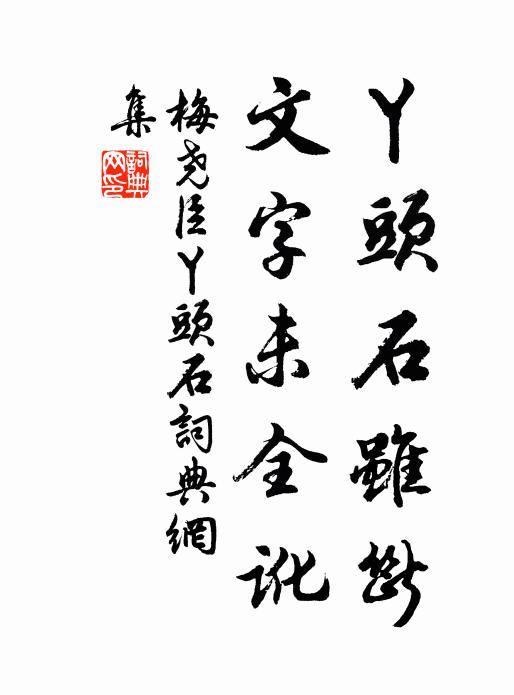 丫頭石雖斷
文字未全訛
梅堯臣丫頭石詞典網
集
詞典網印